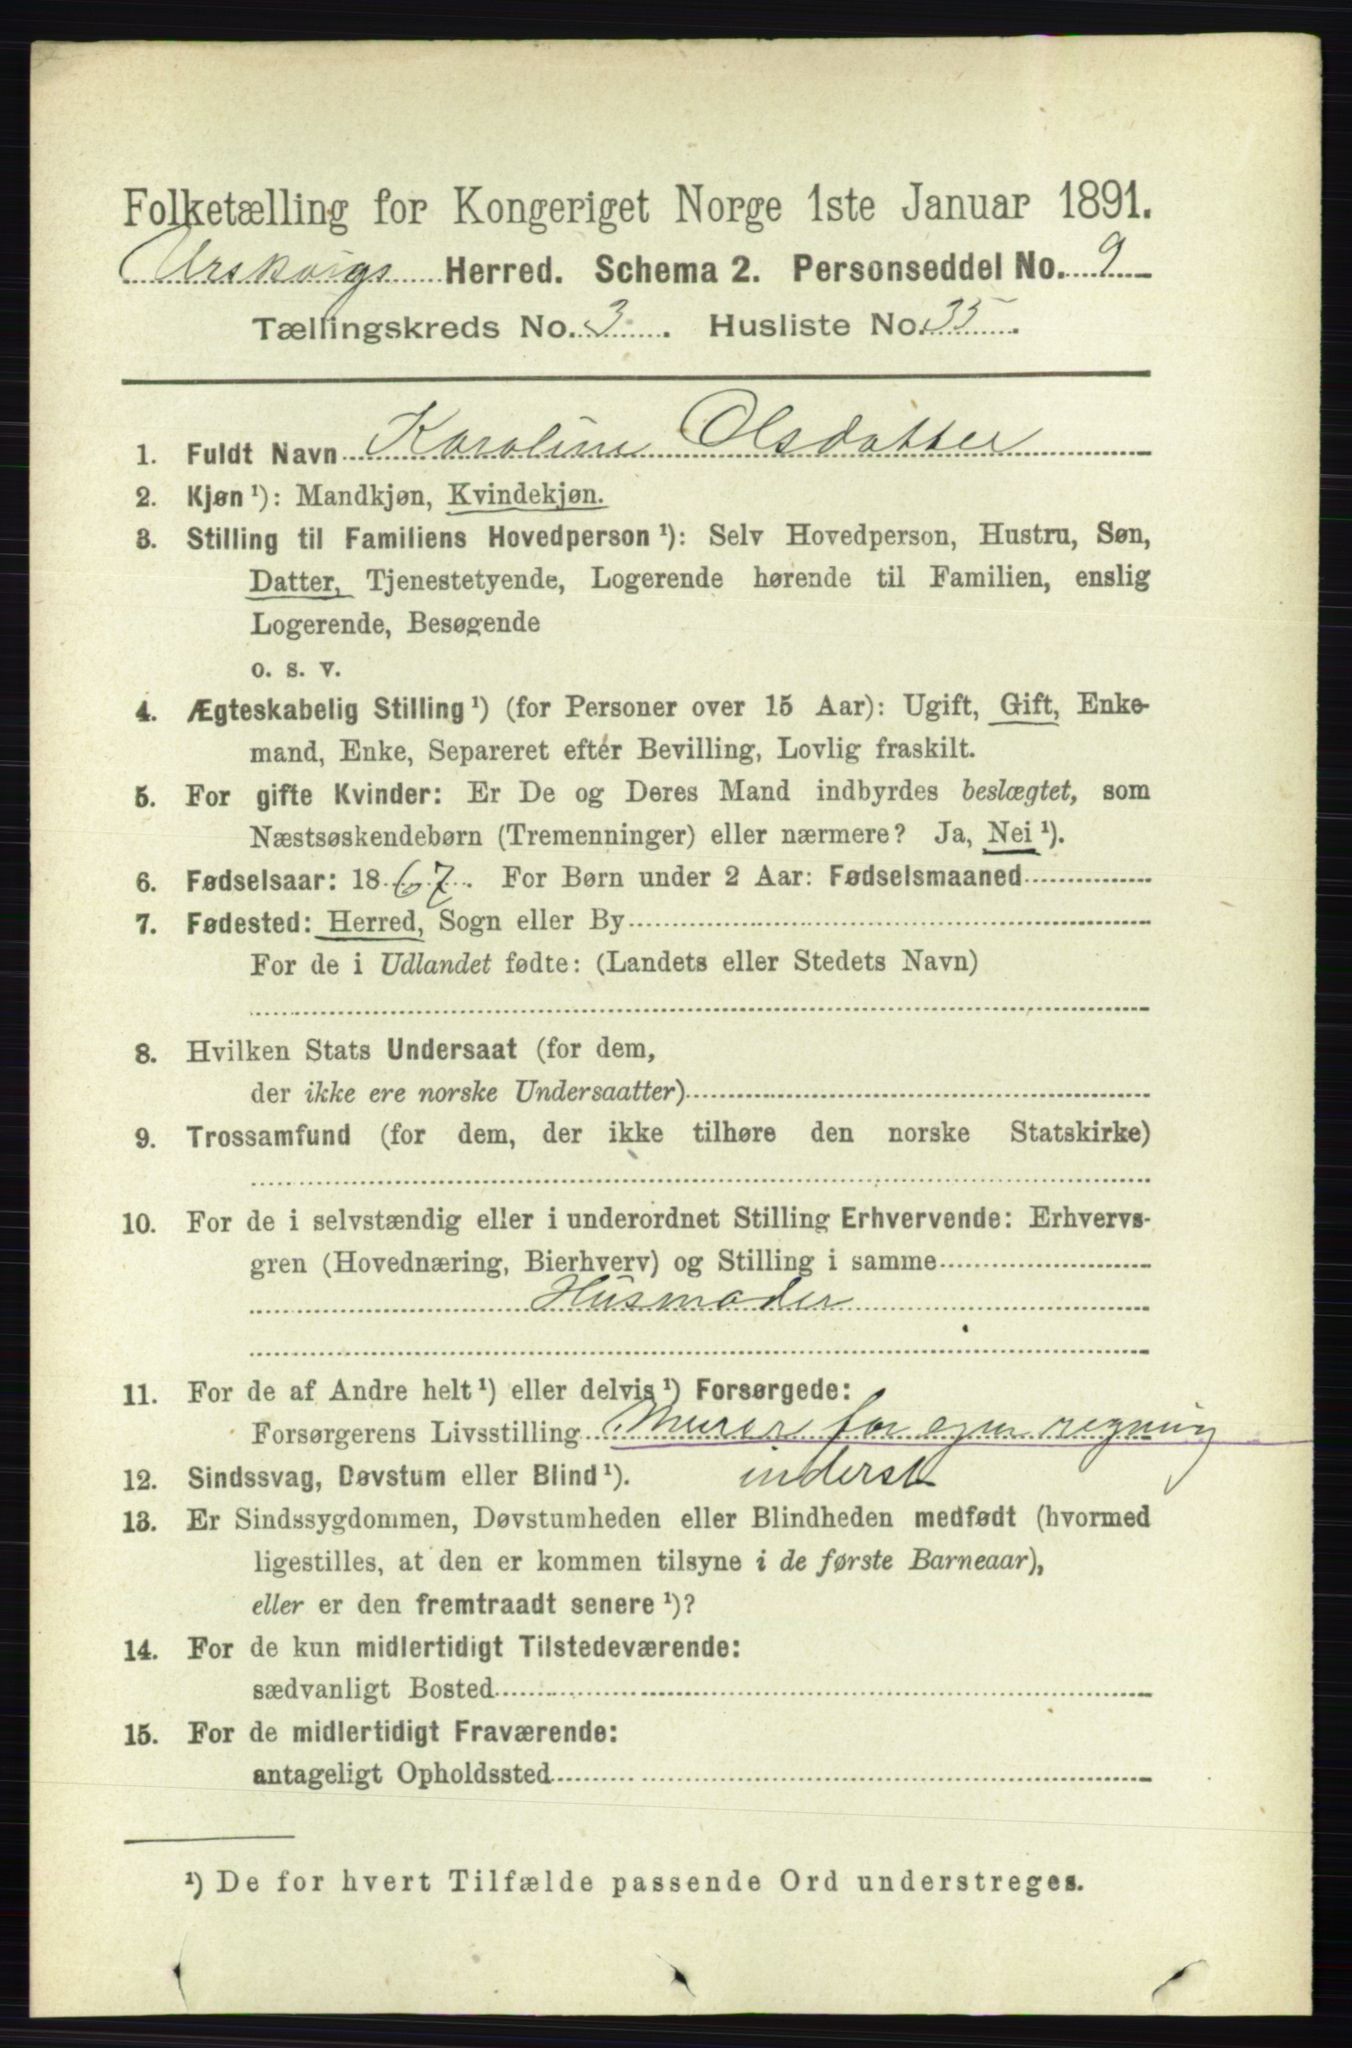 Folketælling for Kongeriget Norge 1ste Januar 1891.
Urskougs Herred. Schema 2. Personseddel No. 9
Tællingskreds No. 3. Husliste No. 35.
1. Fuldt Navn Karoline Olsdatter
2. Kjøn ¹): Mandkjøn, Kvindekjøn.
3. Stilling til Familiens Hovedperson ¹): Selv Hovedperson, Hustru, Søn,
Datter, Tjenestetyende, Logerende hørende til Familien, enslig
Logerende, Besøgende
o. s. v.
4. Ægteskabelig Stilling ¹) (for Personer over 15 Aar): Ugift, Gift, Enke-
mand, Enke, Separeret efter Bevilling, Lovlig fraskilt.
5. For gifte Kvinder: Er De og Deres Mand indbyrdes beslægtet, som
Næstsøskendebørn (Tremenninger) eller nærmere? Ja, Nei ¹).
6. Fødselsaar: 1867. For Børn under 2 Aar: Fødselsmaaned
7. Fødested: Herred, Sogn eller By
For de i Udlandet fødte: (Landets eller Stedets Navn)
8. Hvilken Stats Undersaat (for dem,
der ikke ere norske Undersaatter)
9. Trossamfund (for dem, der ikke tilhøre den norske Statskirke)
10. For de i selvstændig eller i underordnet Stilling Erhvervende: Erhvervs-
gren (Hovednæring, Bierhverv) og Stilling i samme
Husmoder
11. For de af Andre helt ¹) eller delvis ¹) Forsørgede:
Forsørgerens Livsstilling Murer for egen regning
12. Sindssvag, Døvstum eller Blind ¹). inderst
13. Er Sindssygdommen, Døvstumheden eller Blindheden medfødt (hvormed
ligestilles, at den er kommen tilsyne i de første Barneaar),
eller er den fremtraadt senere ¹)?
14. For de kun midlertidigt Tilstedeværende:
sædvanligt Bosted
15. For de midlertidigt Fraværende:
antageligt Opholdssted
¹) De for hvert Tilfælde passende Ord understreges.